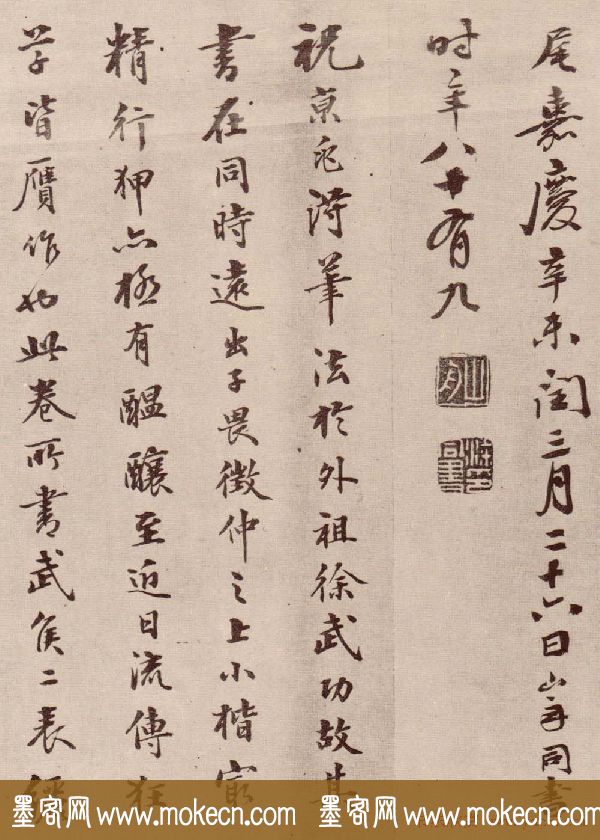 尾嘉慶辛未閏三月二十六日山舟同書
时年八十有九
祝京兆得筆法於外祖徐武功故其
書在同時遠出子畏徵仲之上小楷寂
精行狎亦極有醞釀至近日流傳狂
草皆贋作也此卷所書武侯二表
墨客网 www.mokecn.com 墨客网 www.mokecn.com